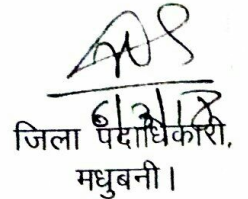 6/2/18
जिला पदाधिकारी,
मधुबनी।